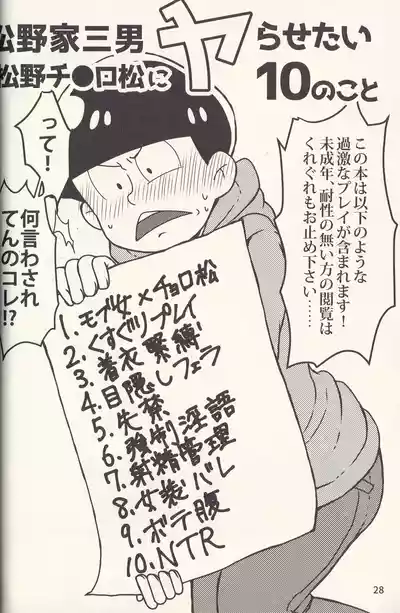 松野家三男
松野チ●ロ松に
ヤらせたい
10のこと
この本は以下のような
過激なプレイが含まれます!
未成年、耐性の無い方の閲覧は
くれぐれもお止め下さい……
って!
何言わされ
てんのコレ!?
1.モブ女×チョロ松
2.くすぐりプレイ
3.着衣緊縛
4.目隠しフェラ
5.失禁
6.強制淫語
7.射精管理
8.女装バレ
9.ボテ腹
10.NTR
28